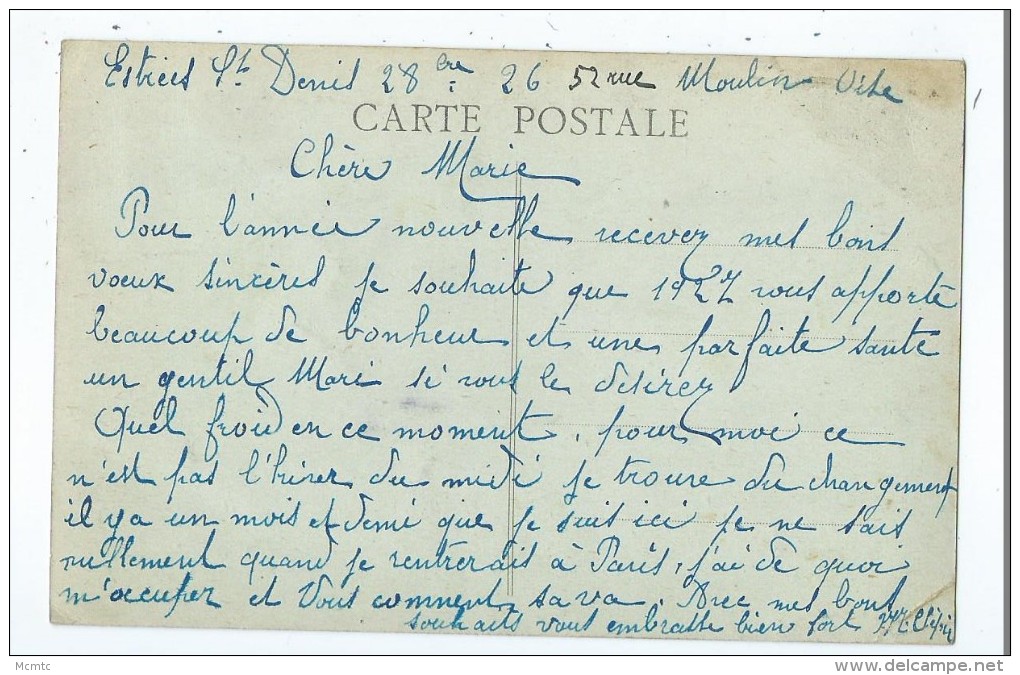 Estrées St Denis 28 bre 26 52 rue Moulin
CARTE POSTALE
Chère Marie
Pour l'année nouvelle recevez mes bons
voeux sincères je souhaite que 1927 vous apporte
beaucoup de bonheur et une parfaite santé
un gentil Mari si vous le désirez
Quel froid en ce moment, pour moi ce
n'est pas l'hiver du midi je trouve du changement
il y a un mois et demi que je suis ici je ne sais
nullement quand je rentrerais à Paris, j'ai de quoi
m'occuper et Vous comment sa va. Avec mes bons
souhaits vous embrasse bien fort
Mcmtc
delcampe.net